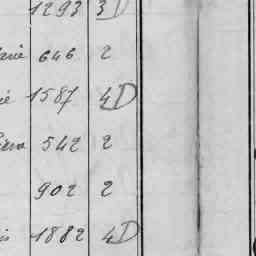 1293 3D
646 2
1587 4D
542 2
902 2
1882 4D